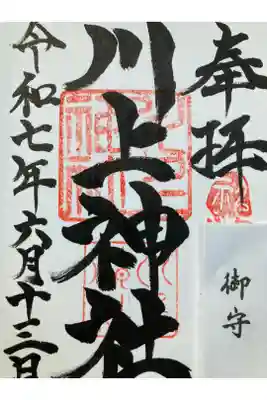 奉拝
川上神社
令和七年六月十三日
御守